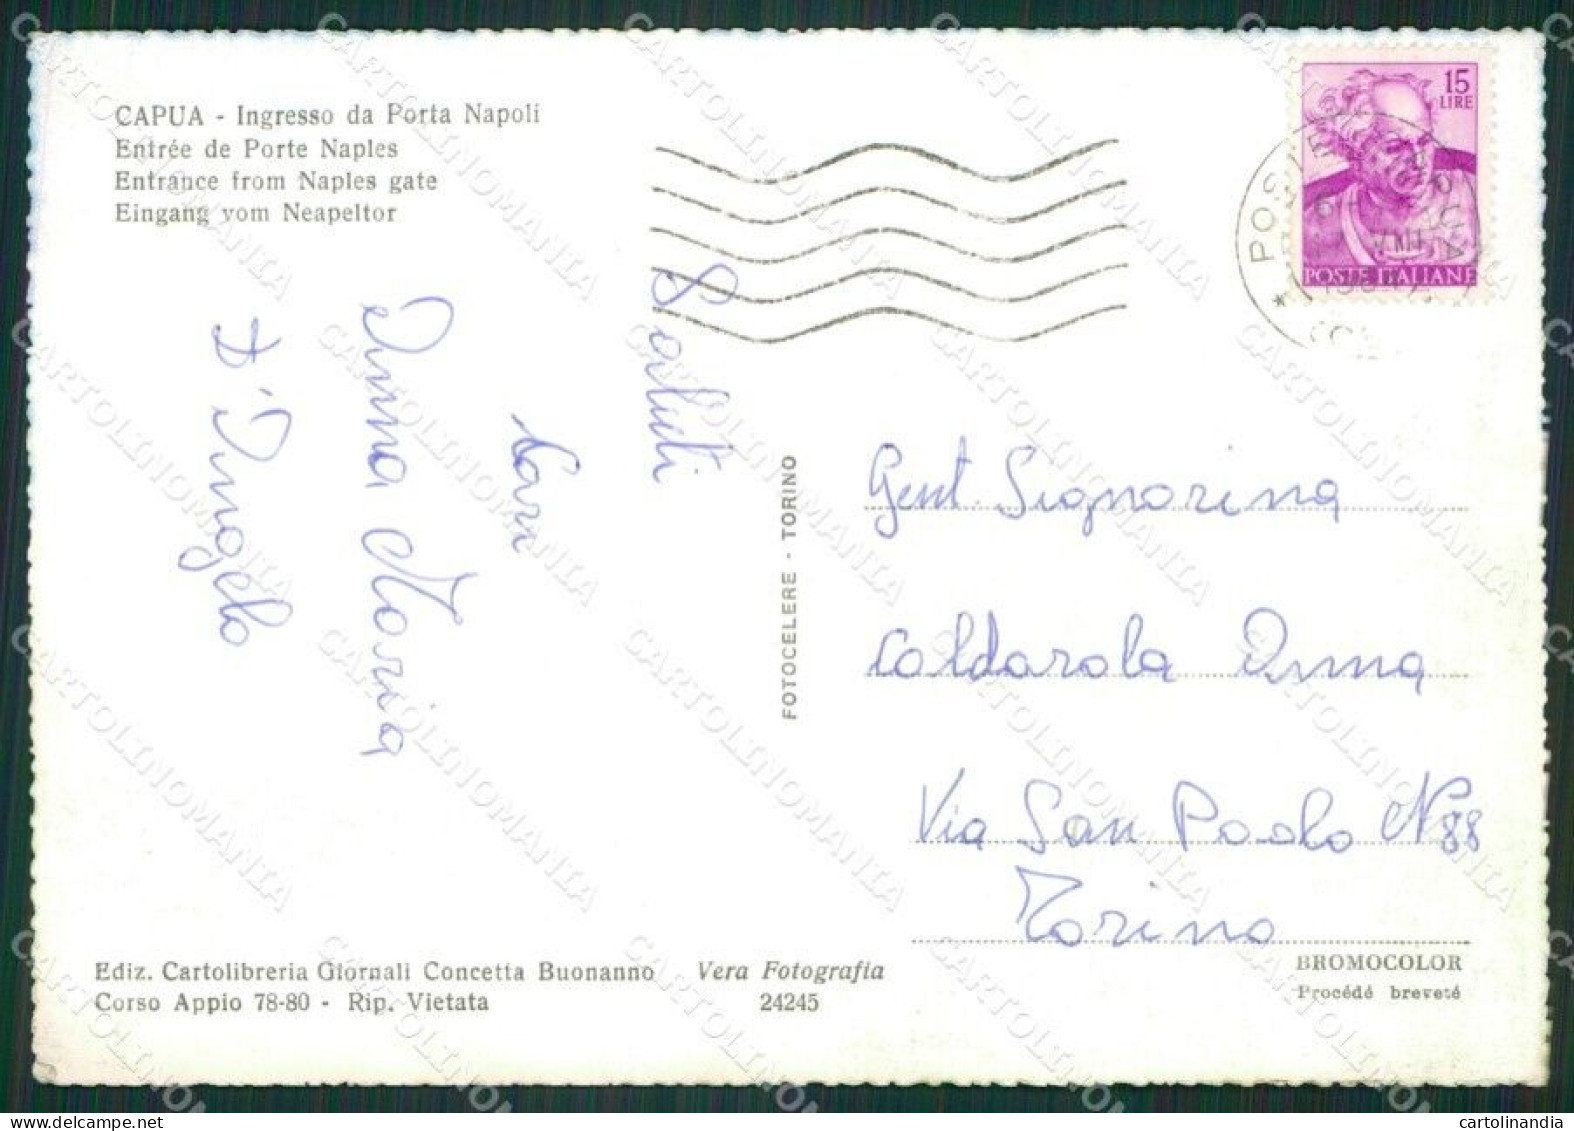 CAPUA - Ingresso da Porta Napoli
Entrée de Porte Naples
Entrance from Naples gate
Eingang vom Neapeltor
15
LIRE
POSTE ITALIANE
Saluti
Cari
Anna Maria
D'Angelo
FOTOCELERE - TORINO
Gent. Signorina
Caldarola Anna
Via San Paolo N° 88
Torino
Ediz. Cartolibreria Giornali Concetta Buonanno
Corso Appio 78-80 - Rip. Vietata
Vera Fotografia
24245
BROMOCOLOR
Procédé breveté
CARTOLINOMANIA
delcampe.net
cartolinandia